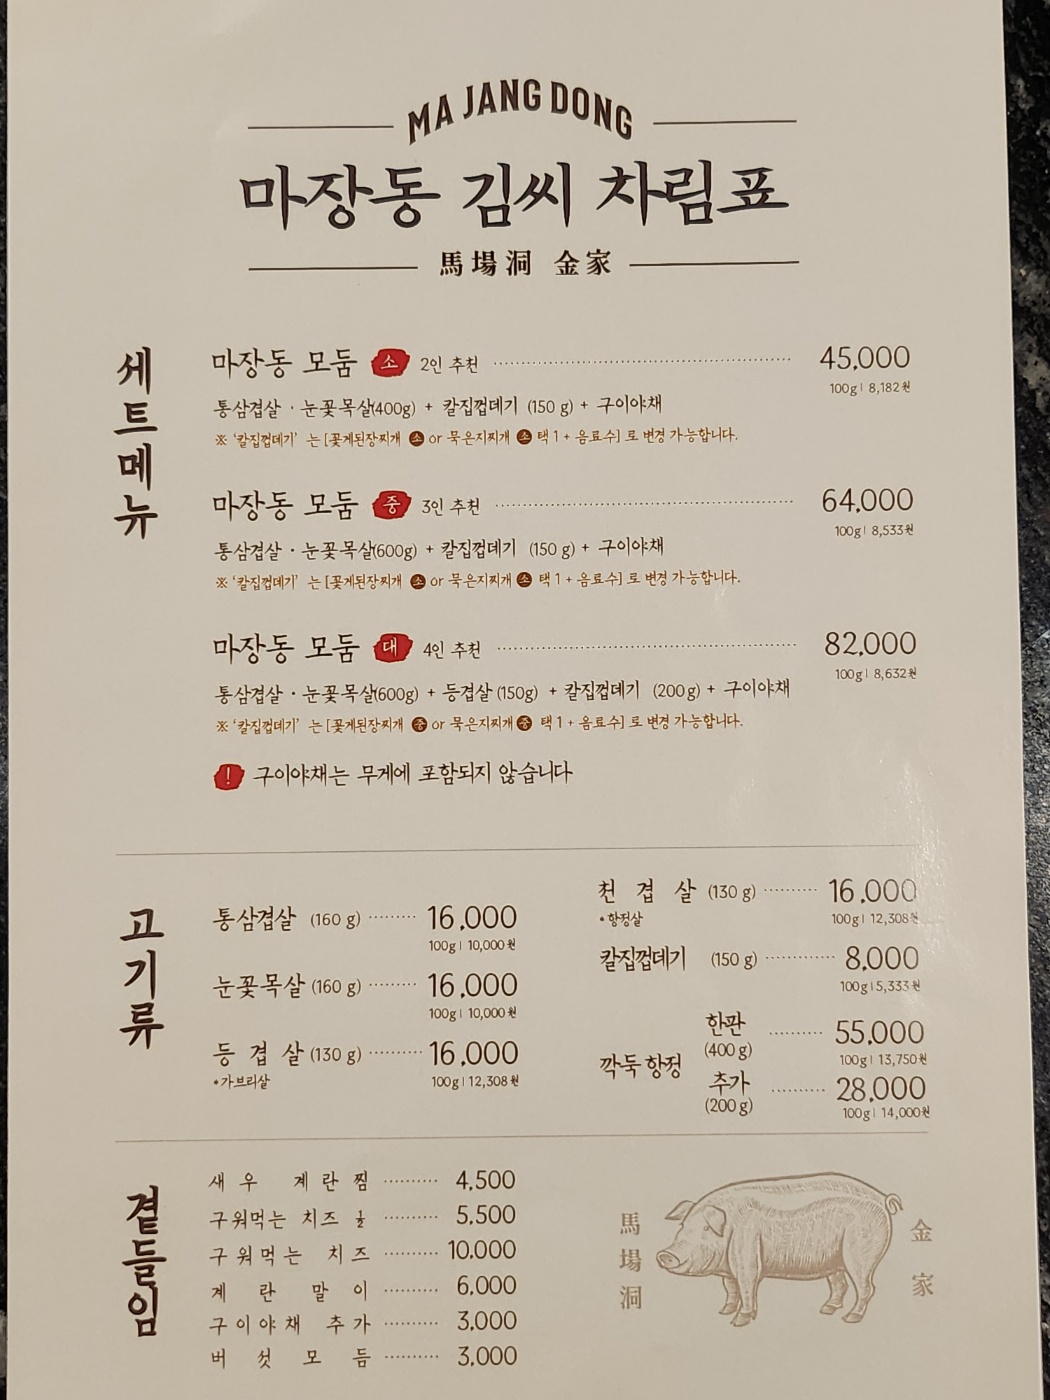 MA JANG DONG
마장동 김씨 차림표
馬場洞 金家
세트메뉴
마장동 모둠 소 2인 추천 45,000
100g | 8,182원
통삼겹살 · 눈꽃목살(400g) + 칼집껍데기 (150 g) + 구이야채
※ '칼집껍데기' 는 [꽃게된장찌개 소 or 묵은지찌개 소 택 1 + 음료수] 로 변경 가능합니다.
마장동 모둠 중 3인 추천 64,000
100g | 8,533원
통삼겹살 · 눈꽃목살(600g) + 칼집껍데기 (150 g) + 구이야채
※ '칼집껍데기' 는 [꽃게된장찌개 소 or 묵은지찌개 소 택 1 + 음료수] 로 변경 가능합니다.
마장동 모둠 대 4인 추천 82,000
100g | 8,632원
통삼겹살 · 눈꽃목살(600g) + 등겹살 (150g) + 칼집껍데기 (200g) + 구이야채
※ '칼집껍데기' 는 [꽃게된장찌개 중 or 묵은지찌개 중 택 1 + 음료수] 로 변경 가능합니다.
! 구이야채는 무게에 포함되지 않습니다
고기류
통삼겹살 (160 g) 16,000
100g | 10,000원
눈꽃목살 (160 g) 16,000
100g | 10,000원
등겹살 (130 g) 16,000
*가브리살 100g | 12,308원
천겹살 (130 g) 16,000
*항정살 100g | 12,308원
칼집껍데기 (150 g) 8,000
100g | 5,333원
깍둑항정
한판 (400 g) 55,000
100g | 13,750원
추가 (200 g) 28,000
100g | 14,000원
곁들임
새우 계란찜 4,500
구워먹는 치즈 ½ 5,500
구워먹는 치즈 10,000
계란말이 6,000
구이야채 추가 3,000
버섯모듬 3,000
馬場洞
金家